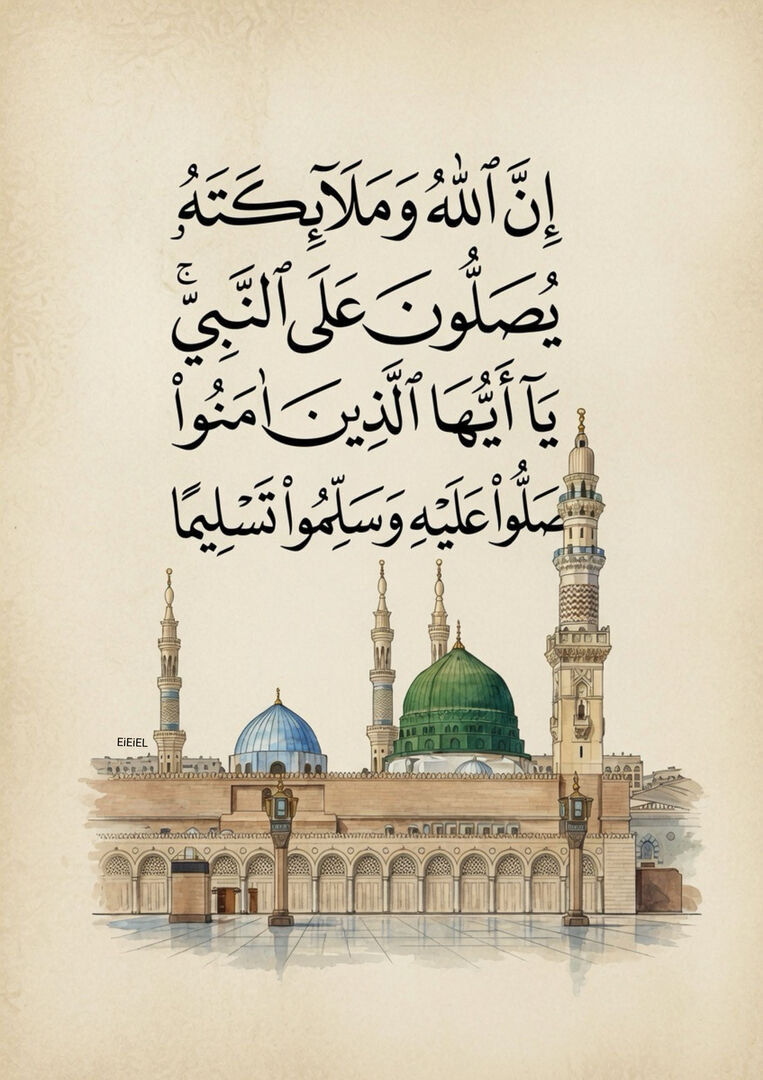 إِنَّ ٱللَّهَ وَمَلَآئِكَتَهُۥ
يُصَلُّونَ عَلَى ٱلنَّبِيِّ ۚ
يَآ أَيُّهَا ٱلَّذِينَ اٰمَنُوا۟
صَلُّوا۟ عَلَيْهِ وَسَلِّمُوا۟ تَسْلِيمًا
EiEiEL